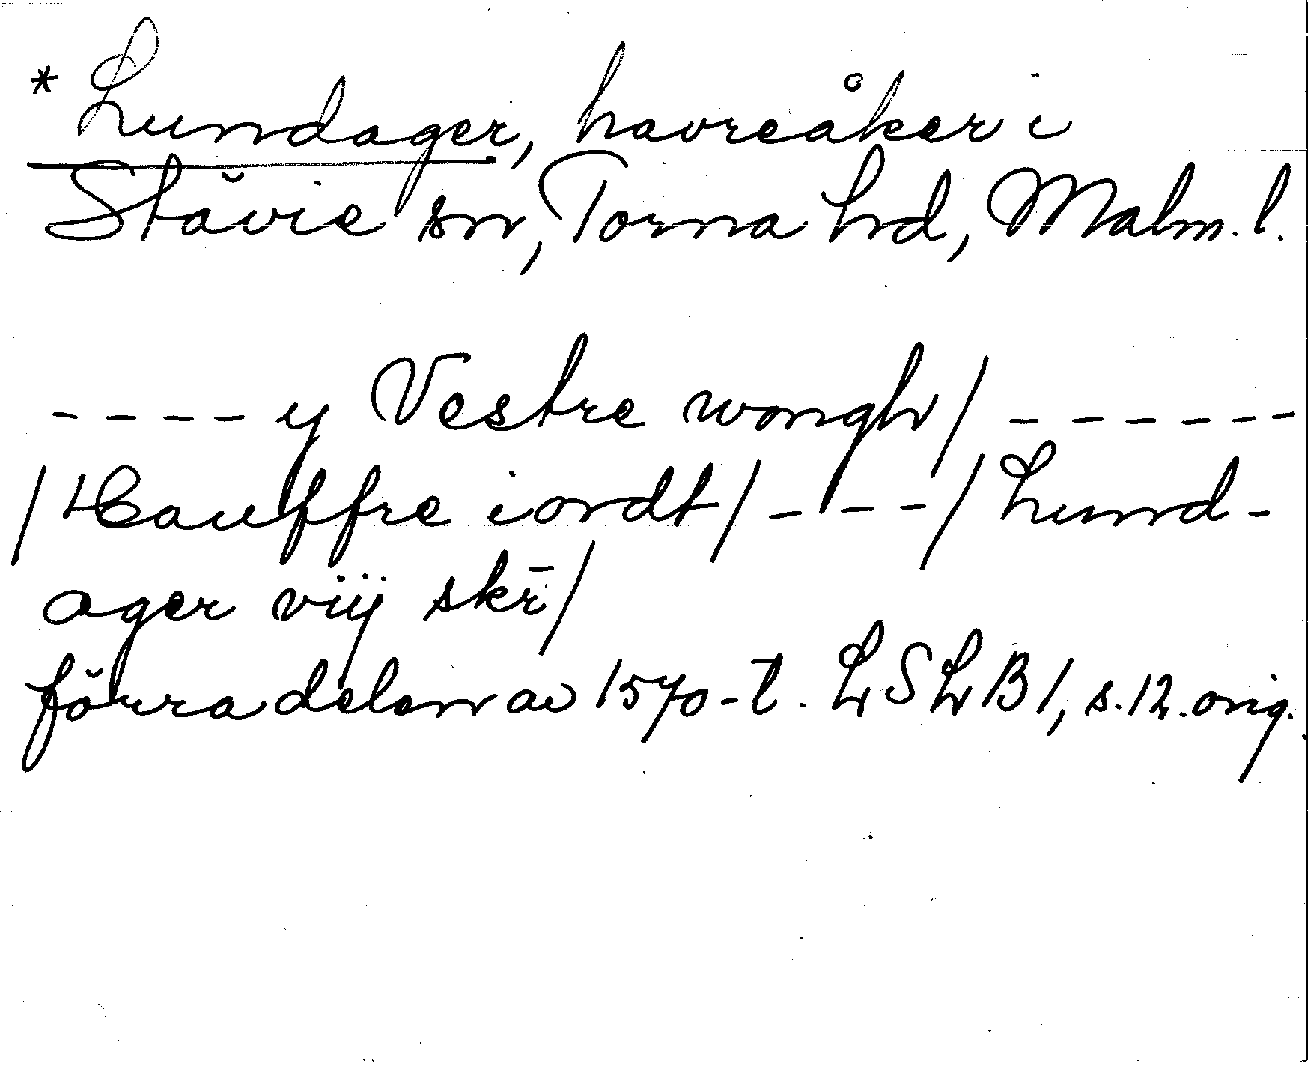 * Lundager, havreåker i
Stävie sn, Torna hd, Malm. l.
---- y Vestre wongh/ ------
/Hauffre iordt/ ---/ Lund-
ager viij skr̄/
förra delen av 1570-t. LSLB 1, s. 12. orig.